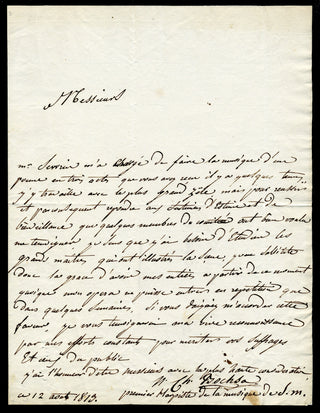 Messieurs
mr Sewrin m'a chargé de faire la musique d'un
poeme en trois actes que vous avez reçu il y a quelques tems,
j'y travaille avec le plus grand zèle mais pour reussir
et par consequent repondre aux d'estime et de
bienveillance que quelques membres de ont bien voulu
me temoigner, je sens que j'ai besoin d'etudier les
grands maitres, qui ont illustré la Scene, je Sollicite
donc la grace d'avoir mes entrées a partir de ce moment
quoique mon opera ne puisse entrer en repetition que
dans quelques Semaines. Si vous daignez m'accorder cette
faveur, je vous temoignerai ma vive reconnaissance
par mes efforts constants pour meriter vos Suffrages
Et ceux du public
j'ai l'honneur d'etre messieurs avec la plus haute consideration
N. Ch. Bochsa
ce 12 aout 1813. premier Harpiste de la musique de S. m.